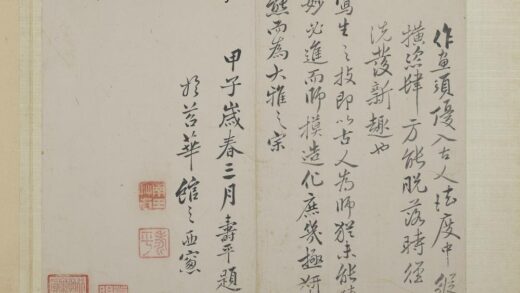 作畫須優入古人法度中縱
橫恣肆方能脫落時徑
洗發新趣也
寫生之技即以古人為師猶未能臻
妙必進而師摸造化庶幾極妍
態而為大雅之宗
甲子歲春三月壽平題
於苕華館之西窗
壽平